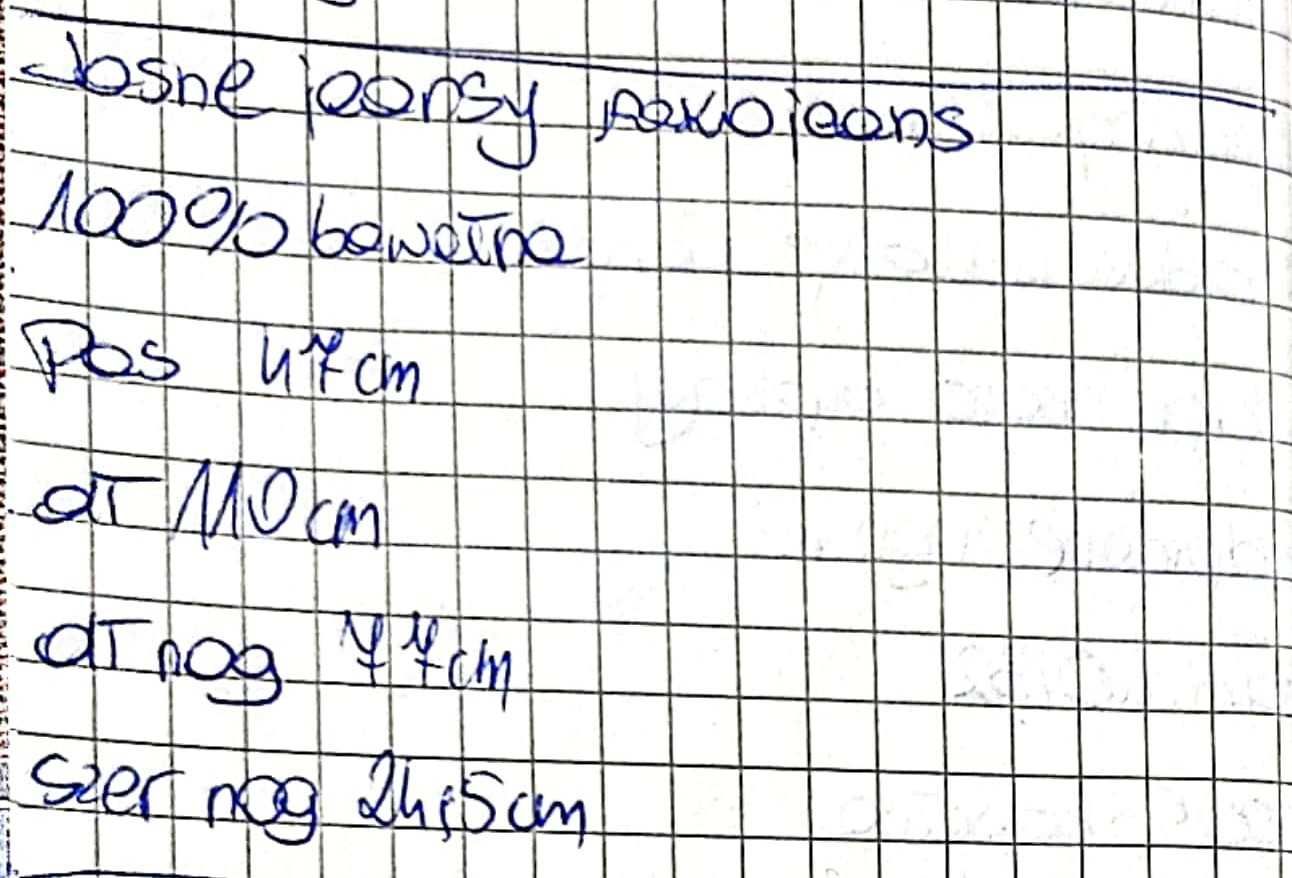 Jasne jeansy rekojeans
100% bawełna
Pas 47cm
dł 110cm
dł nog 77cm
szer nog 24,5cm